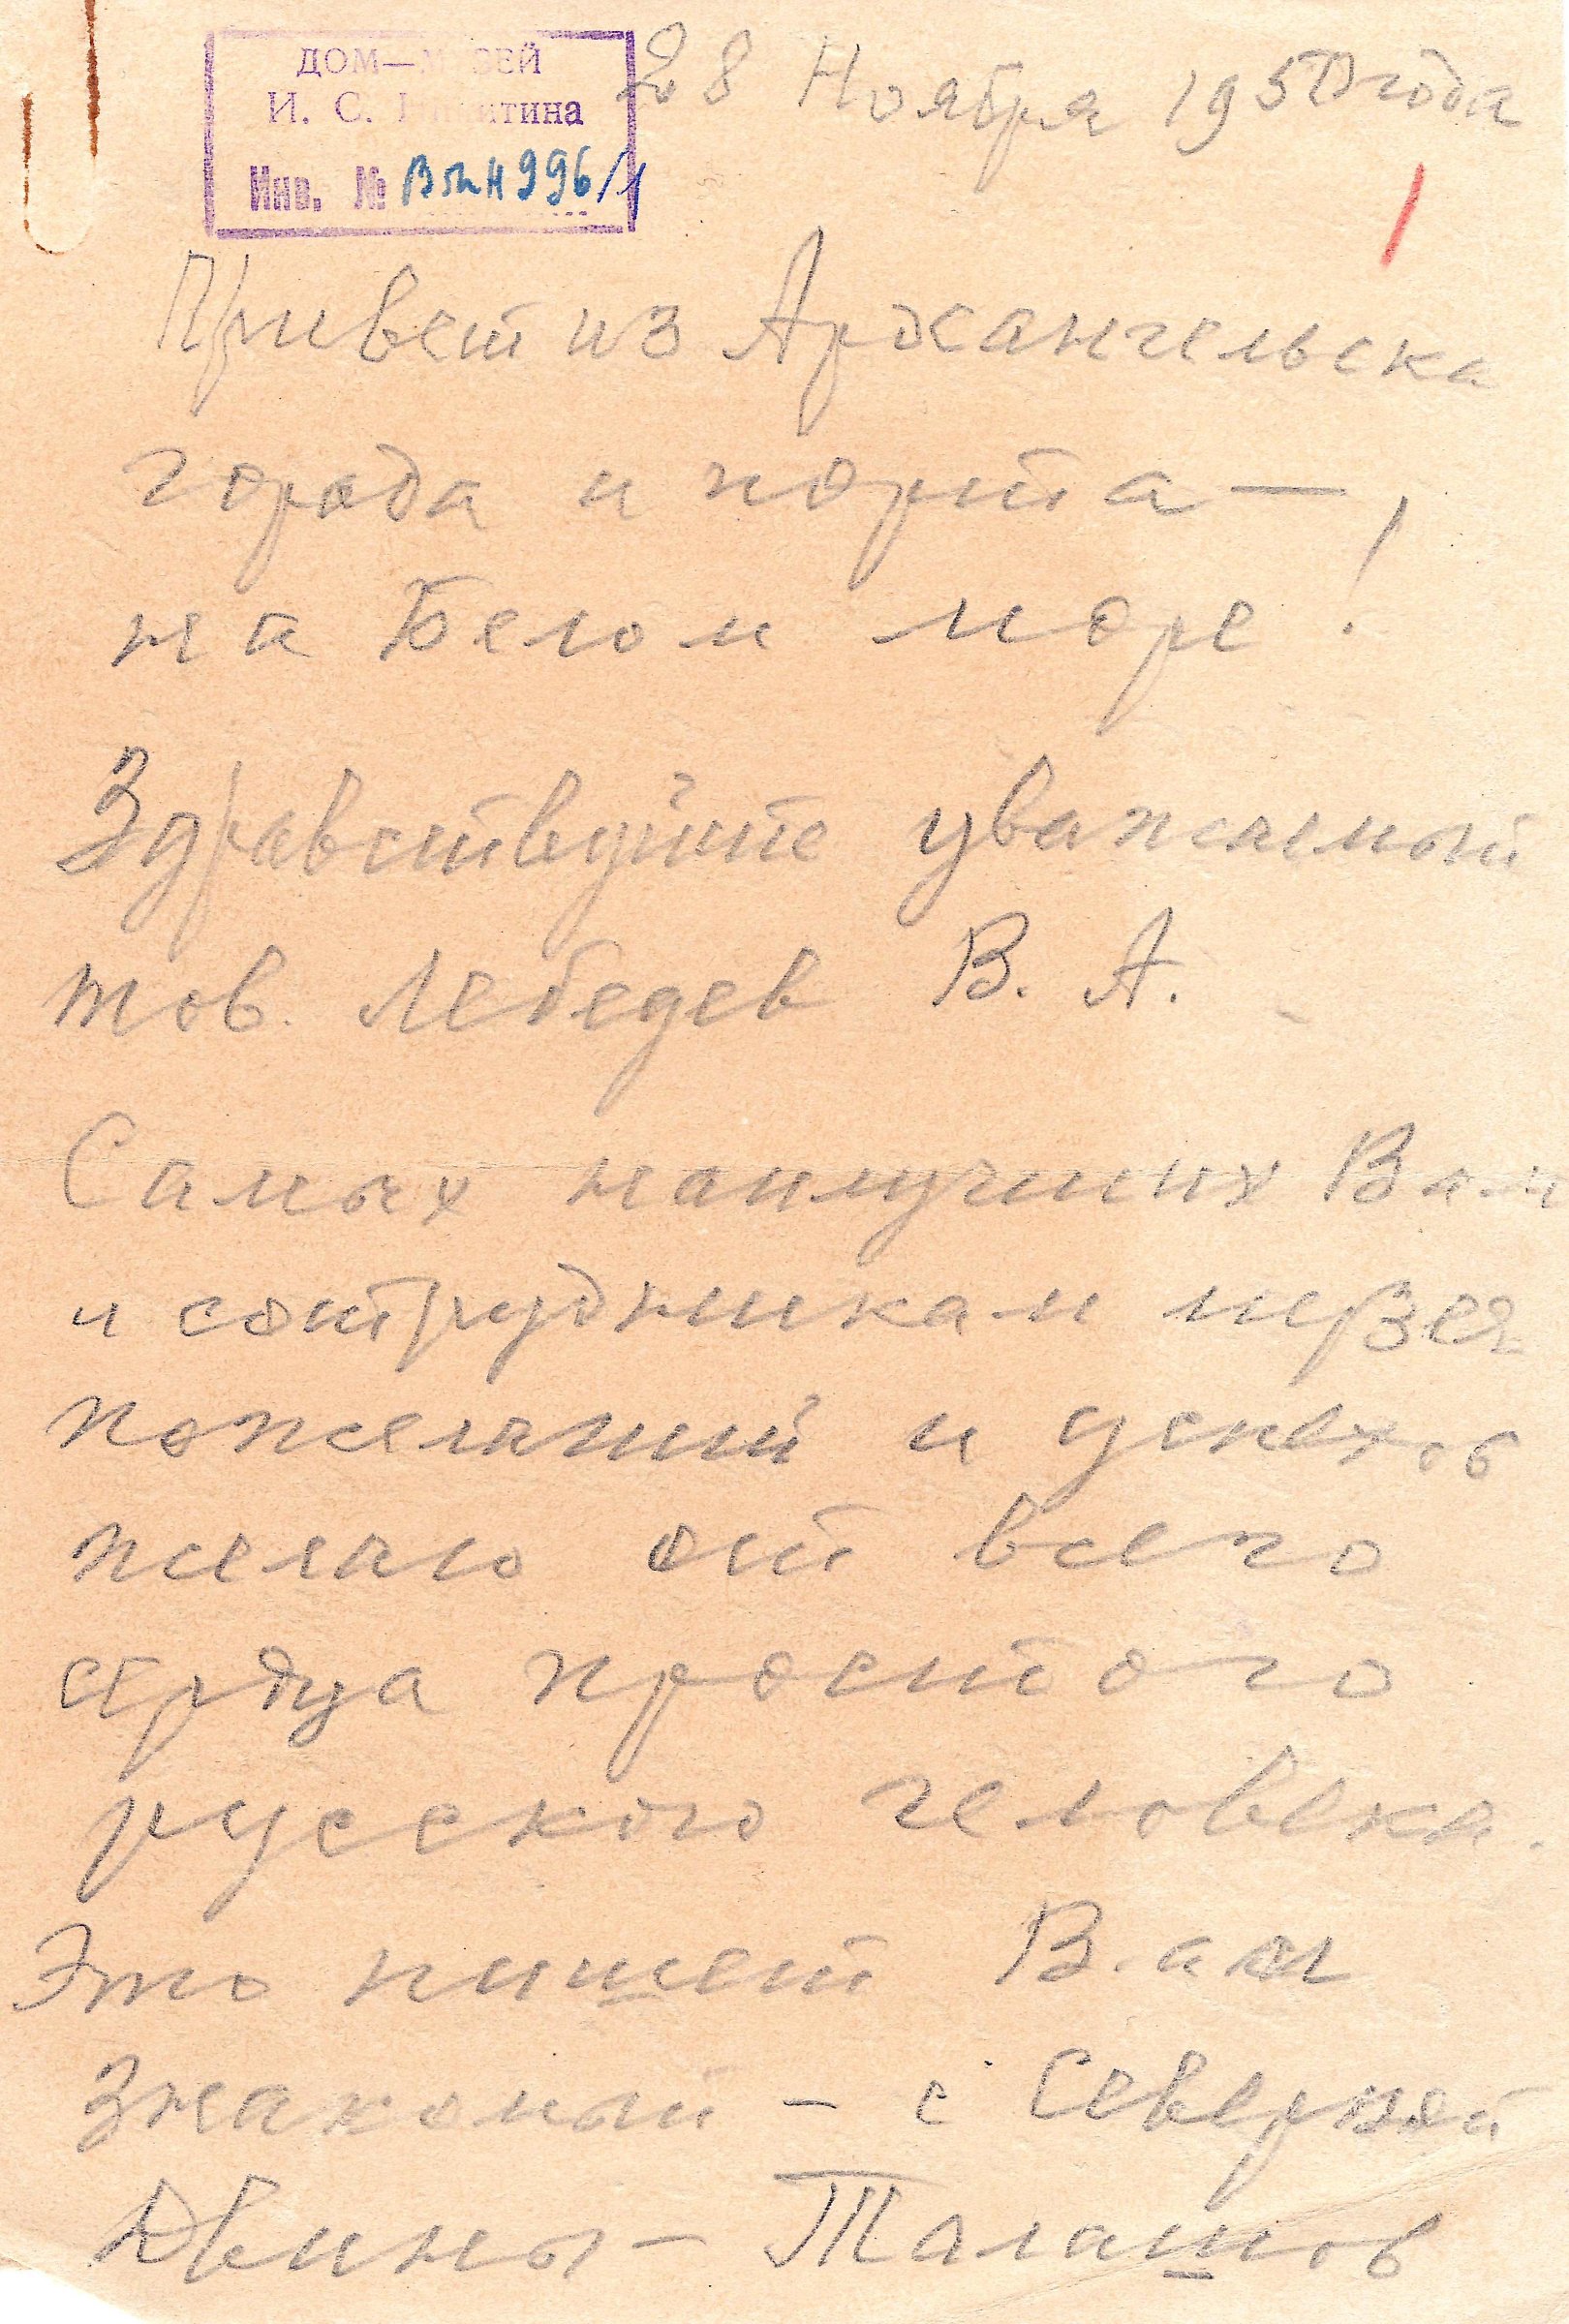 ДОМ—МУЗЕЙ
И. С. Никитина
Инв. № Впн 996/1
28 Ноября 1950 года
Привет из Архангельска
города и порта —
на Белом море!
Здравствуйте уважаемый
тов. Лебедев В. А.
Самых наилучших Вам
и сотрудникам музея
пожеланий и успехов
желаю от всего
сердца простого
русского человека.
Это пишет Вам
знакомый – с Северной
Двины – Талашов